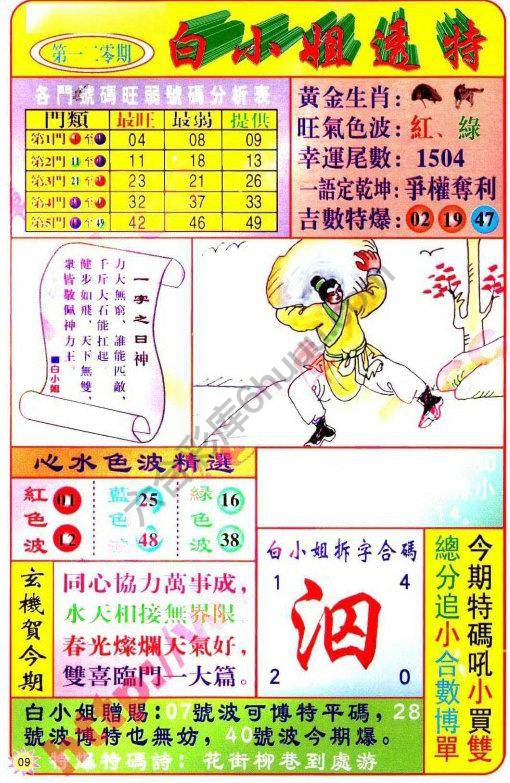 第一二零期
白小姐透特
各門號碼旺弱號碼分析表
門類 最旺 最弱 提供
第1門 至 04 08 09
第2門 11 至 11 18 13
第3門 21 至 23 21 26
第4門 至 32 37 33
第5門 至 49 42 46 49
黃金生肖：
旺氣色波：紅、綠
幸運尾數：1504
一語定乾坤：爭權奪利
吉數特爆：02 19 47
一字之曰神
力大無窮，誰能匹敵，
千斤大石能扛起，
健步如飛，天下無雙，
衆皆敬佩神力王。
■白小姐
六合彩库
心水色波精選
紅色波 01 12
藍色波 25 48
綠色波 16 38
玄機賀今期
同心協力萬事成，
水天相接無界限
春光燦爛天氣好，
雙喜臨門一大篇。
白小姐拆字合碼
1 4
泅
2 0
今期特碼吼小買雙
總分追小合數博單
白小姐贈賜：07號波可博特平碼，28
號波博特也無妨，40號波今期爆。
特爆特碼詩：花街柳巷到處游
09